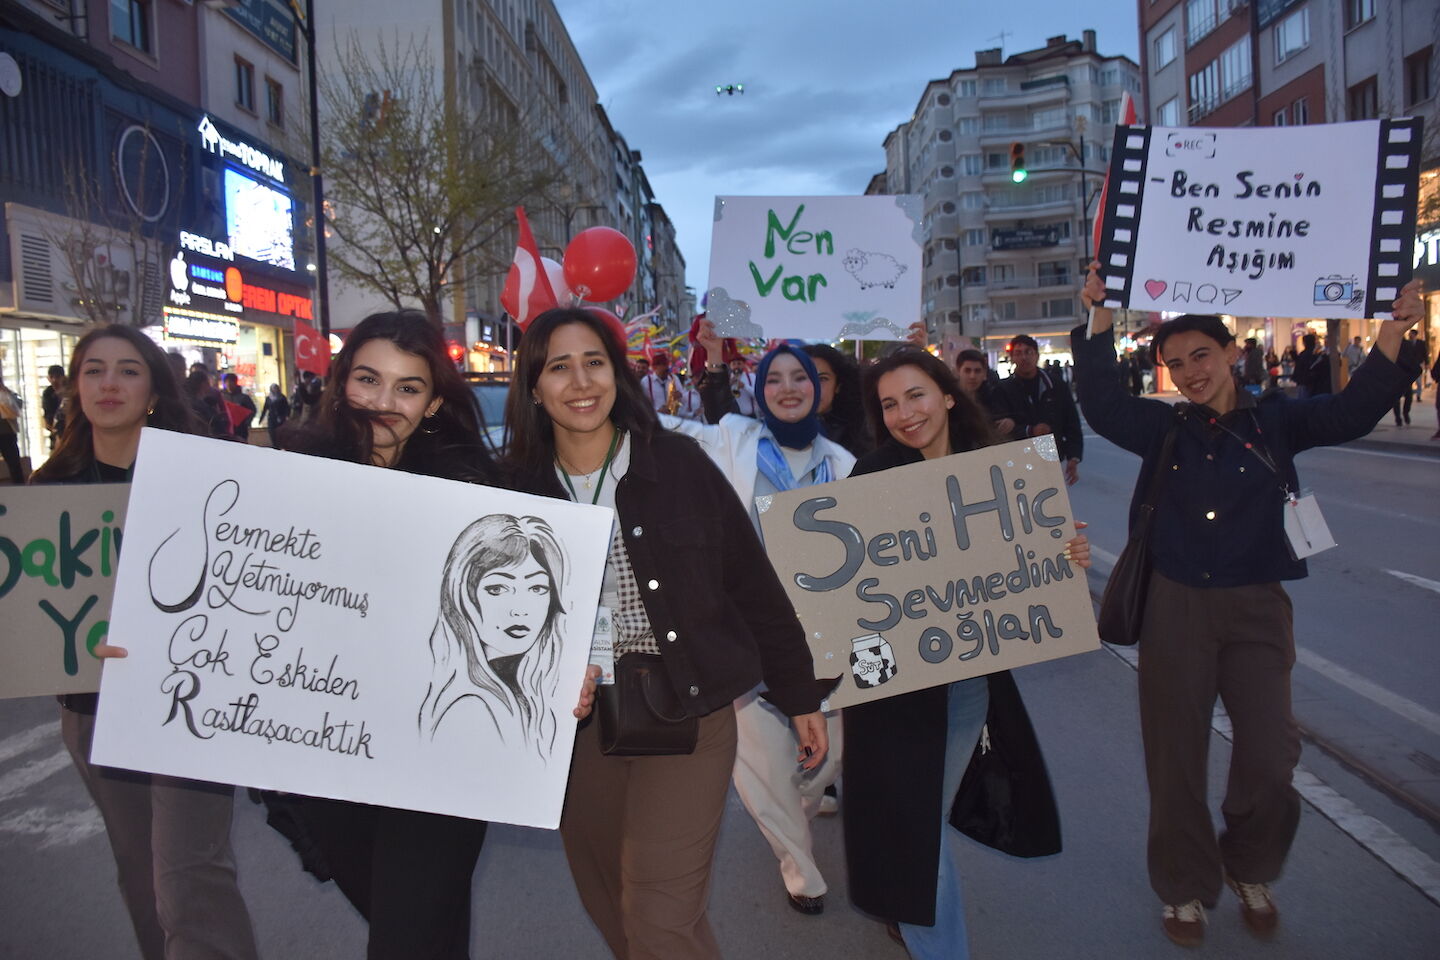 TOPRAK
ARSLAN
Apple
SAMSUNG
EREM OPTİK
Nen
Var
REC
-Ben Senin
Resmine
Aşığım
Sakin
Yo
Sevmekte
Yetmiyormuş
Çok Eskiden
Rastlaşacaktık
Seni Hiç
Sevmedim
oğlan
SÜT
ASİSTANI